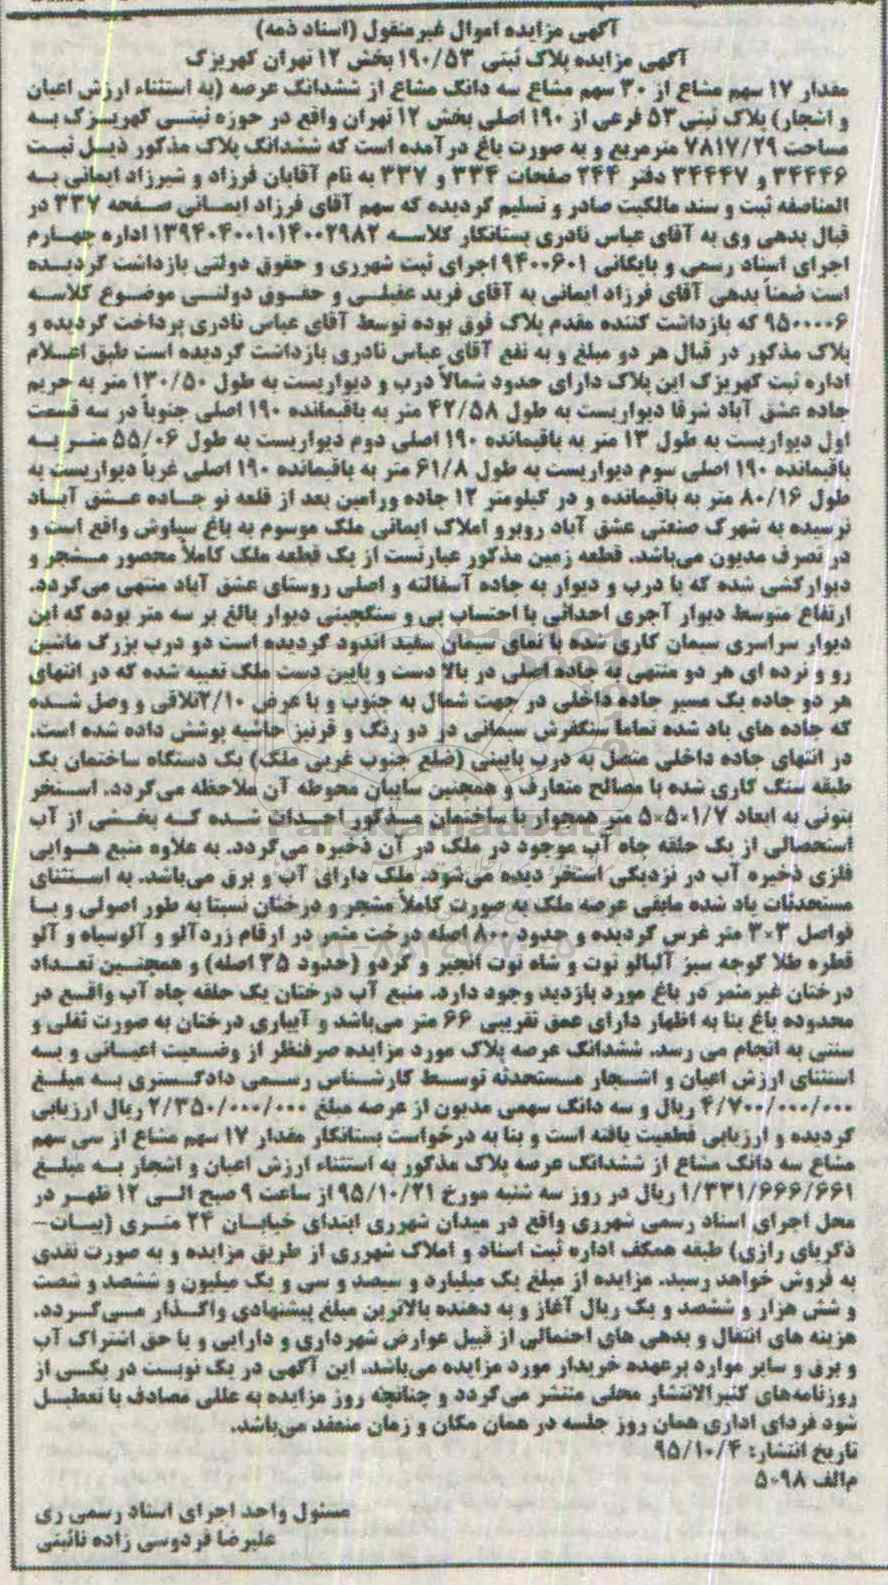 آگهی مزایده اموال غیرمنقول (اسناد ذمه)
آگهی مزایده پلاک ثبتی ۱۹۰/۵۳ بخش ۱۲ تهران کهریزک
مقدار ۱۷ سهم مشاع از ۳۰ سهم مشاع سه دانگ مشاع از ششدانگ عرصه (به استثناء ارزش اعیان
و اشجار) پلاک ثبتی ۵۳ فرعی از ۱۹۰ اصلی بخش ۱۲ تهران واقع در حوزه ثبتی کهریزک به
مساحت ۷۸۱۷/۲۹ مترمربع و به صورت باغ درآمده است که ششدانگ پلاک مذکور ذیل ثبت
۳۴۴۴۶ و ۳۴۴۴۷ دفتر ۲۴۴ صفحات ۳۳۴ و ۳۳۷ به نام آقایان فرزاد و شیرزاد ایمانی به
المناصفه ثبت و سند مالکیت صادر و تسلیم گردیده که سهم آقای فرزاد ایمانی صفحه ۳۳۷ در
قبال بدهی وی به آقای عباس نادری بستانکار کلاسه ۱۳۹۴۰۴۰۰۱۰۱۴۰۰۲۹۸۲ اداره چهارم
اجرای اسناد رسمی و بایگانی ۹۴۰۰۶۰۱ اجرای ثبت شهرری و حقوق دولتی بازداشت گردیده
است ضمناً بدهی آقای فرزاد ایمانی به آقای فرید عقیلی و حقوق دولتی موضوع کلاسه
۹۵۰۰۰۰۶ که بازداشت کننده مقدم پلاک فوق بوده توسط آقای عباس نادری پرداخت گردیده و
پلاک مذکور در قبال هر دو مبلغ و به نفع آقای عباس نادری بازداشت گردیده است طبق اعلام
اداره ثبت کهریزک این پلاک دارای حدود شمالاً درب و دیواریست به طول ۱۳۰/۵۰ متر به حریم
جاده عشق آباد شرقا دیواریست به طول ۴۲/۵۸ متر به باقیمانده ۱۹۰ اصلی جنوباً در سه قسمت
اول دیواریست به طول ۱۳ متر به باقیمانده ۱۹۰ اصلی دوم دیواریست به طول ۵۵/۰۶ متر به
باقیمانده ۱۹۰ اصلی سوم دیواریست به طول ۶۱/۸ متر به باقیمانده ۱۹۰ اصلی غرباً دیواریست به
طول ۸۰/۱۶ متر به باقیمانده و در کیلومتر ۱۲ جاده ورامین بعد از قلعه نو جاده عشق آباد
نرسیده به شهرک صنعتی عشق آباد روبرو املاک ایمانی ملک موسوم به باغ سیاوش واقع است و
در تصرف مدیون می‌باشد. قطعه زمین مذکور عبارتست از یک قطعه ملک کاملاً محصور مشجر و
دیوارکشی شده که با درب و دیوار به جاده آسفالته و اصلی روستای عشق آباد منتهی می‌گردد.
ارتفاع متوسط دیوار آجری احداثی با احتساب پی و سنگچینی دیوار بالغ بر سه متر بوده که این
دیوار سراسری سیمان کاری شده با نمای سیمان سفید اندود گردیده است دو درب بزرگ ماشین
رو و نرده ای هر دو منتهی به جاده اصلی در بالا دست و پایین دست ملک تعبیه شده که در انتهای
هر دو جاده یک مسیر جاده داخلی در جهت شمال به جنوب و با عرض ۲/۱۰ تلاقی و وصل شده
که جاده های یاد شده تماما سنگفرش سیمانی در دو رنگ و قرنیز حاشیه پوشش داده شده است.
در انتهای جاده داخلی متصل به درب پایینی (ضلع جنوب غربی ملک) یک دستگاه ساختمان یک
طبقه سنگ کاری شده با مصالح متعارف و همچنین سایبان محوطه آن ملاحظه می‌گردد. استخر
بتونی به ابعاد ۱/۷×۵×۵ متر همجوار با ساختمان مذکور احداث شده که بخشی از آب
استحصالی از یک حلقه چاه آب موجود در ملک در آن ذخیره می‌گردد. به علاوه منبع هوایی
فلزی ذخیره آب در نزدیکی استخر دیده می‌شود. ملک دارای آب و برق می‌باشد. به استثنای
مستحدثات یاد شده مابقی عرصه ملک به صورت کاملاً مشجر و درختان نسبتا به طور اصولی و با
فواصل ۳×۳ متر غرس گردیده و حدود ۸۰۰ اصله درخت مثمر در ارقام زردآلو و آلوسیاه و آلو
قطره طلا گوجه سبز آلبالو توت و شاه توت انجیر و گردو (حدود ۳۵ اصله) و همچنین تعداد
درختان غیرمثمر در باغ مورد بازدید وجود دارد. منبع آب درختان یک حلقه چاه آب واقع در
محدوده باغ بنا به اظهار دارای عمق تقریبی ۶۶ متر می‌باشد و آبیاری درختان به صورت ثقلی و
سنتی به انجام می رسد. ششدانگ عرصه پلاک مورد مزایده صرفنظر از وضعیت اعیانی و به
استثنای ارزش اعیان و اشجار مستحدثه توسط کارشناس رسمی دادگستری به مبلغ
۴/۷۰۰/۰۰۰/۰۰۰ ریال و سه دانگ سهمی مدیون از عرصه مبلغ ۲/۳۵۰/۰۰۰/۰۰۰ ریال ارزیابی
گردیده و ارزیابی قطعیت یافته است و بنا به درخواست بستانکار مقدار ۱۷ سهم مشاع از سی سهم
مشاع سه دانگ مشاع از ششدانگ عرصه پلاک مذکور به استثناء ارزش اعیان و اشجار به مبلغ
۱/۳۳۱/۶۶۶/۶۶۱ ریال در روز سه شنبه مورخ ۹۵/۱۰/۲۱ از ساعت ۹ صبح الی ۱۲ ظهر در
محل اجرای اسناد رسمی شهرری واقع در میدان شهرری ابتدای خیابان ۲۴ متری (بیات-
ذکریای رازی) طبقه همکف اداره ثبت اسناد و املاک شهرری از طریق مزایده و به صورت نقدی
به فروش خواهد رسید. مزایده از مبلغ یک میلیارد و سیصد و سی و یک میلیون و ششصد و شصت
و شش هزار و ششصد و یک ریال آغاز و به دهنده بالاترین مبلغ پیشنهادی واگذار می‌گردد.
هزینه های انتقال و بدهی های احتمالی از قبیل عوارض شهرداری و دارایی و یا حق اشتراک آب
و برق و سایر موارد برعهده خریدار مورد مزایده می‌باشد. این آگهی در یک نوبت در یکی از
روزنامه‌های کثیرالانتشار محلی منتشر می‌گردد و چنانچه روز مزایده به عللی مصادف با تعطیل
شود فردای اداری همان روز جلسه در همان مکان و زمان منعقد می‌باشد.
تاریخ انتشار: ۹۵/۱۰/۴
م‌الف ۵۰۹۸
مسئول واحد اجرای اسناد رسمی ری
علیرضا فردوسی زاده نائینی